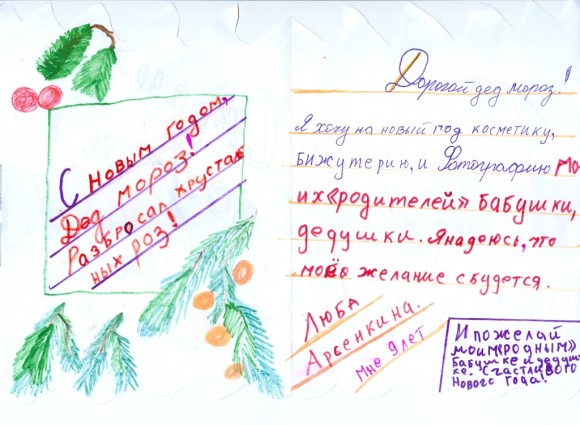 С НОВЫМ ГОДОМ,
Дед МОРОЗ!
РАЗБРОСАЛ ХРУСТАЛЬ
НЫХ РОЗ!
Дорогой дед мороз!
Я хочу на новый год косметику,
БИЖУТЕРИЮ, И Фотографию МО-
ИХ «РОДИТЕЛЕЙ» БАБУШКИ,
ДЕДУШКИ. Я надеюсь, что
моё желание сбудется.
ЛЮБА
Арсенкина.
Мне 9 лет
И пожелай
моим «родным»
бабушке и дедуш-
ке. Счастливого
Нового года!